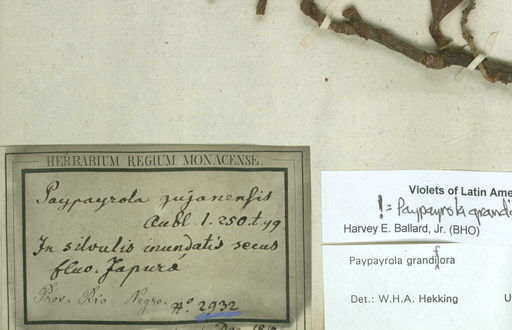 HERBARIUM REGIUM MONACENSE.
Paypayrola gujanensis
Aubl. 1. 250. t. 99
In silvulis inundatis secus
fluv. Japurá
Prov. Rio Negro.
No. 2932
Violets of Latin Ame
! = Paypayrola grandi
Harvey E. Ballard, Jr. (BHO)
Paypayrola grandiflora
Det.: W.H.A. Hekking
U
Dec.